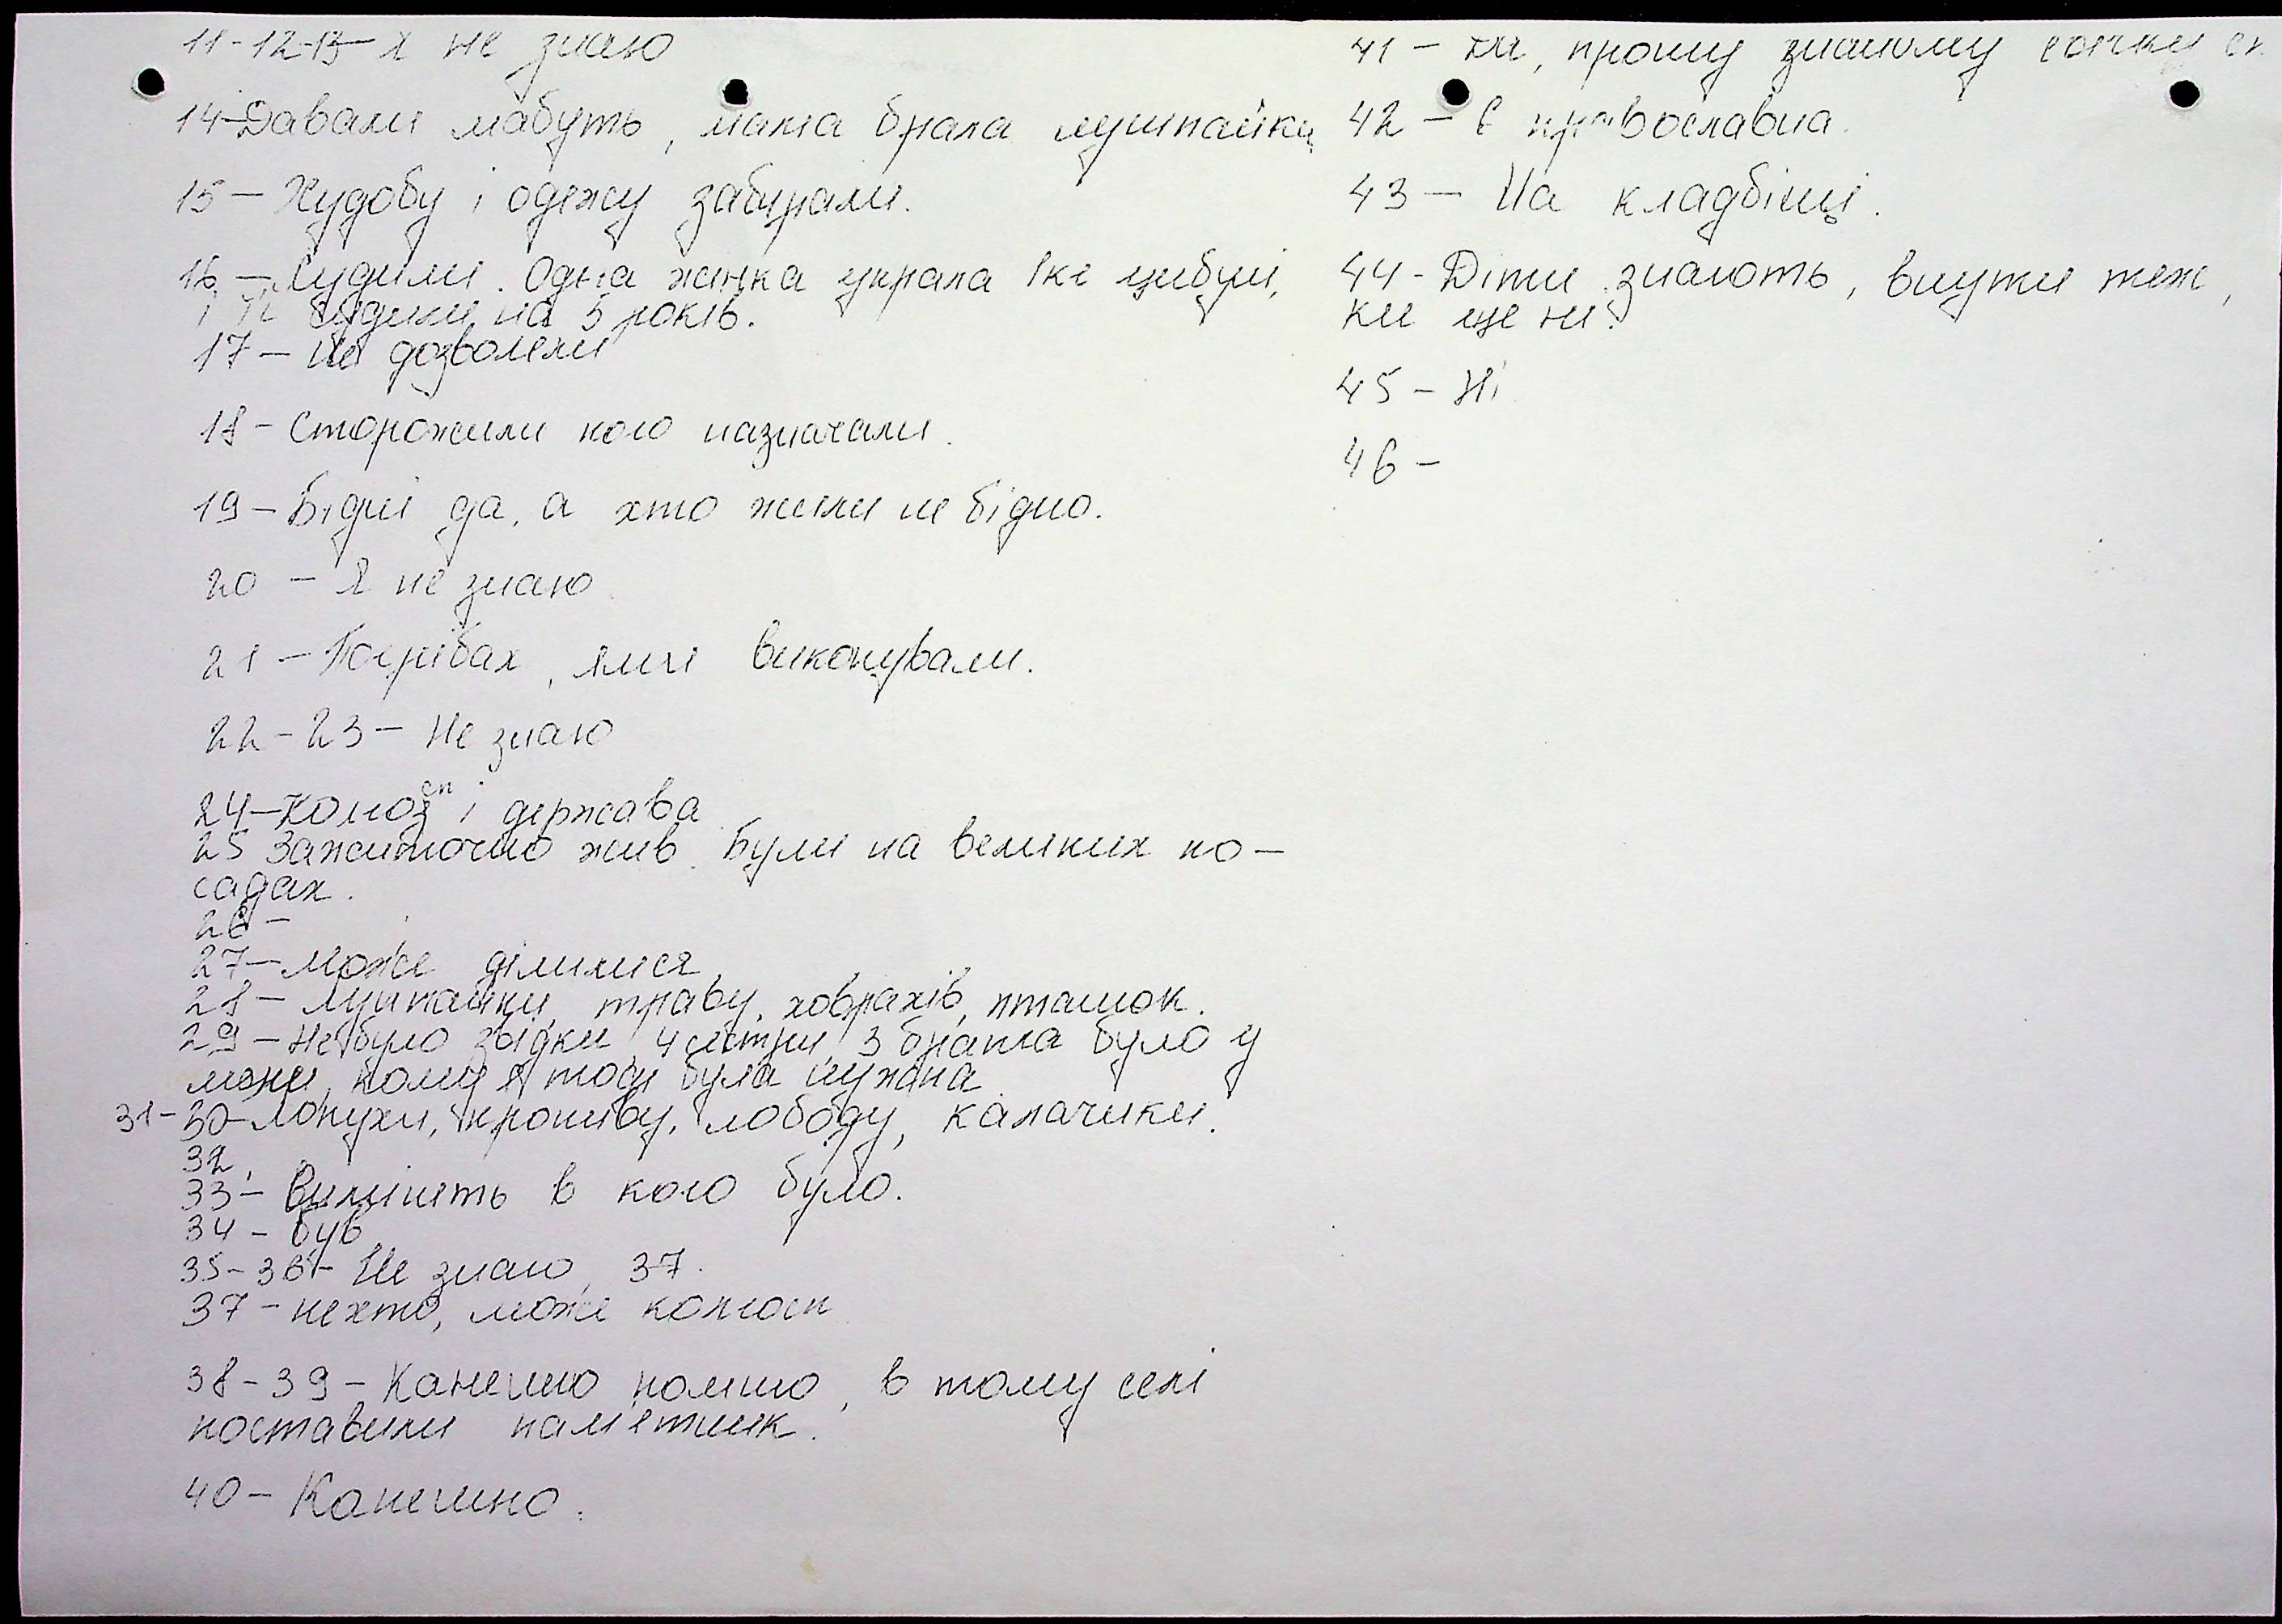 11-12-13- Я не знаю
14-Давали мабуть, мама брала лушпайки
15- Худобу і одежу забирали.
16- Судили. Одна жінка украла 1кг цибулі,
і її судили на 5 років.
17- Не дозволяли
18- Сторожили кого назначали.
19- Бідні да, а хто жили не бідно.
20 - Я не знаю
21- Погрібах, ями викопували.
22-23- Не знаю
24- Колгосп і держава
25 Зажиточно жив. Були на великих по-
садах.
26-
27- може ділилися
28- лушпайки, траву, ховрахів, пташок.
29- Не було звідки, 4 сестри, 3 брата було у
мене, кому я тоді була нужна
31-30- лопухи, кропиву, лободу, калачики.
32,
33- Вимінять в кого було.
34- був
35-36- Не знаю, 37.
37- нехто, може колгосп
38-39- Канешно помню, в тому селі
поставили памʼятник.
40- Канешно.
41- прошу знакому свічку
42- Є православна.
43- На кладбіщі.
44- Діти знають, внуки теж,
ки ще ні.
45- Ні
46-